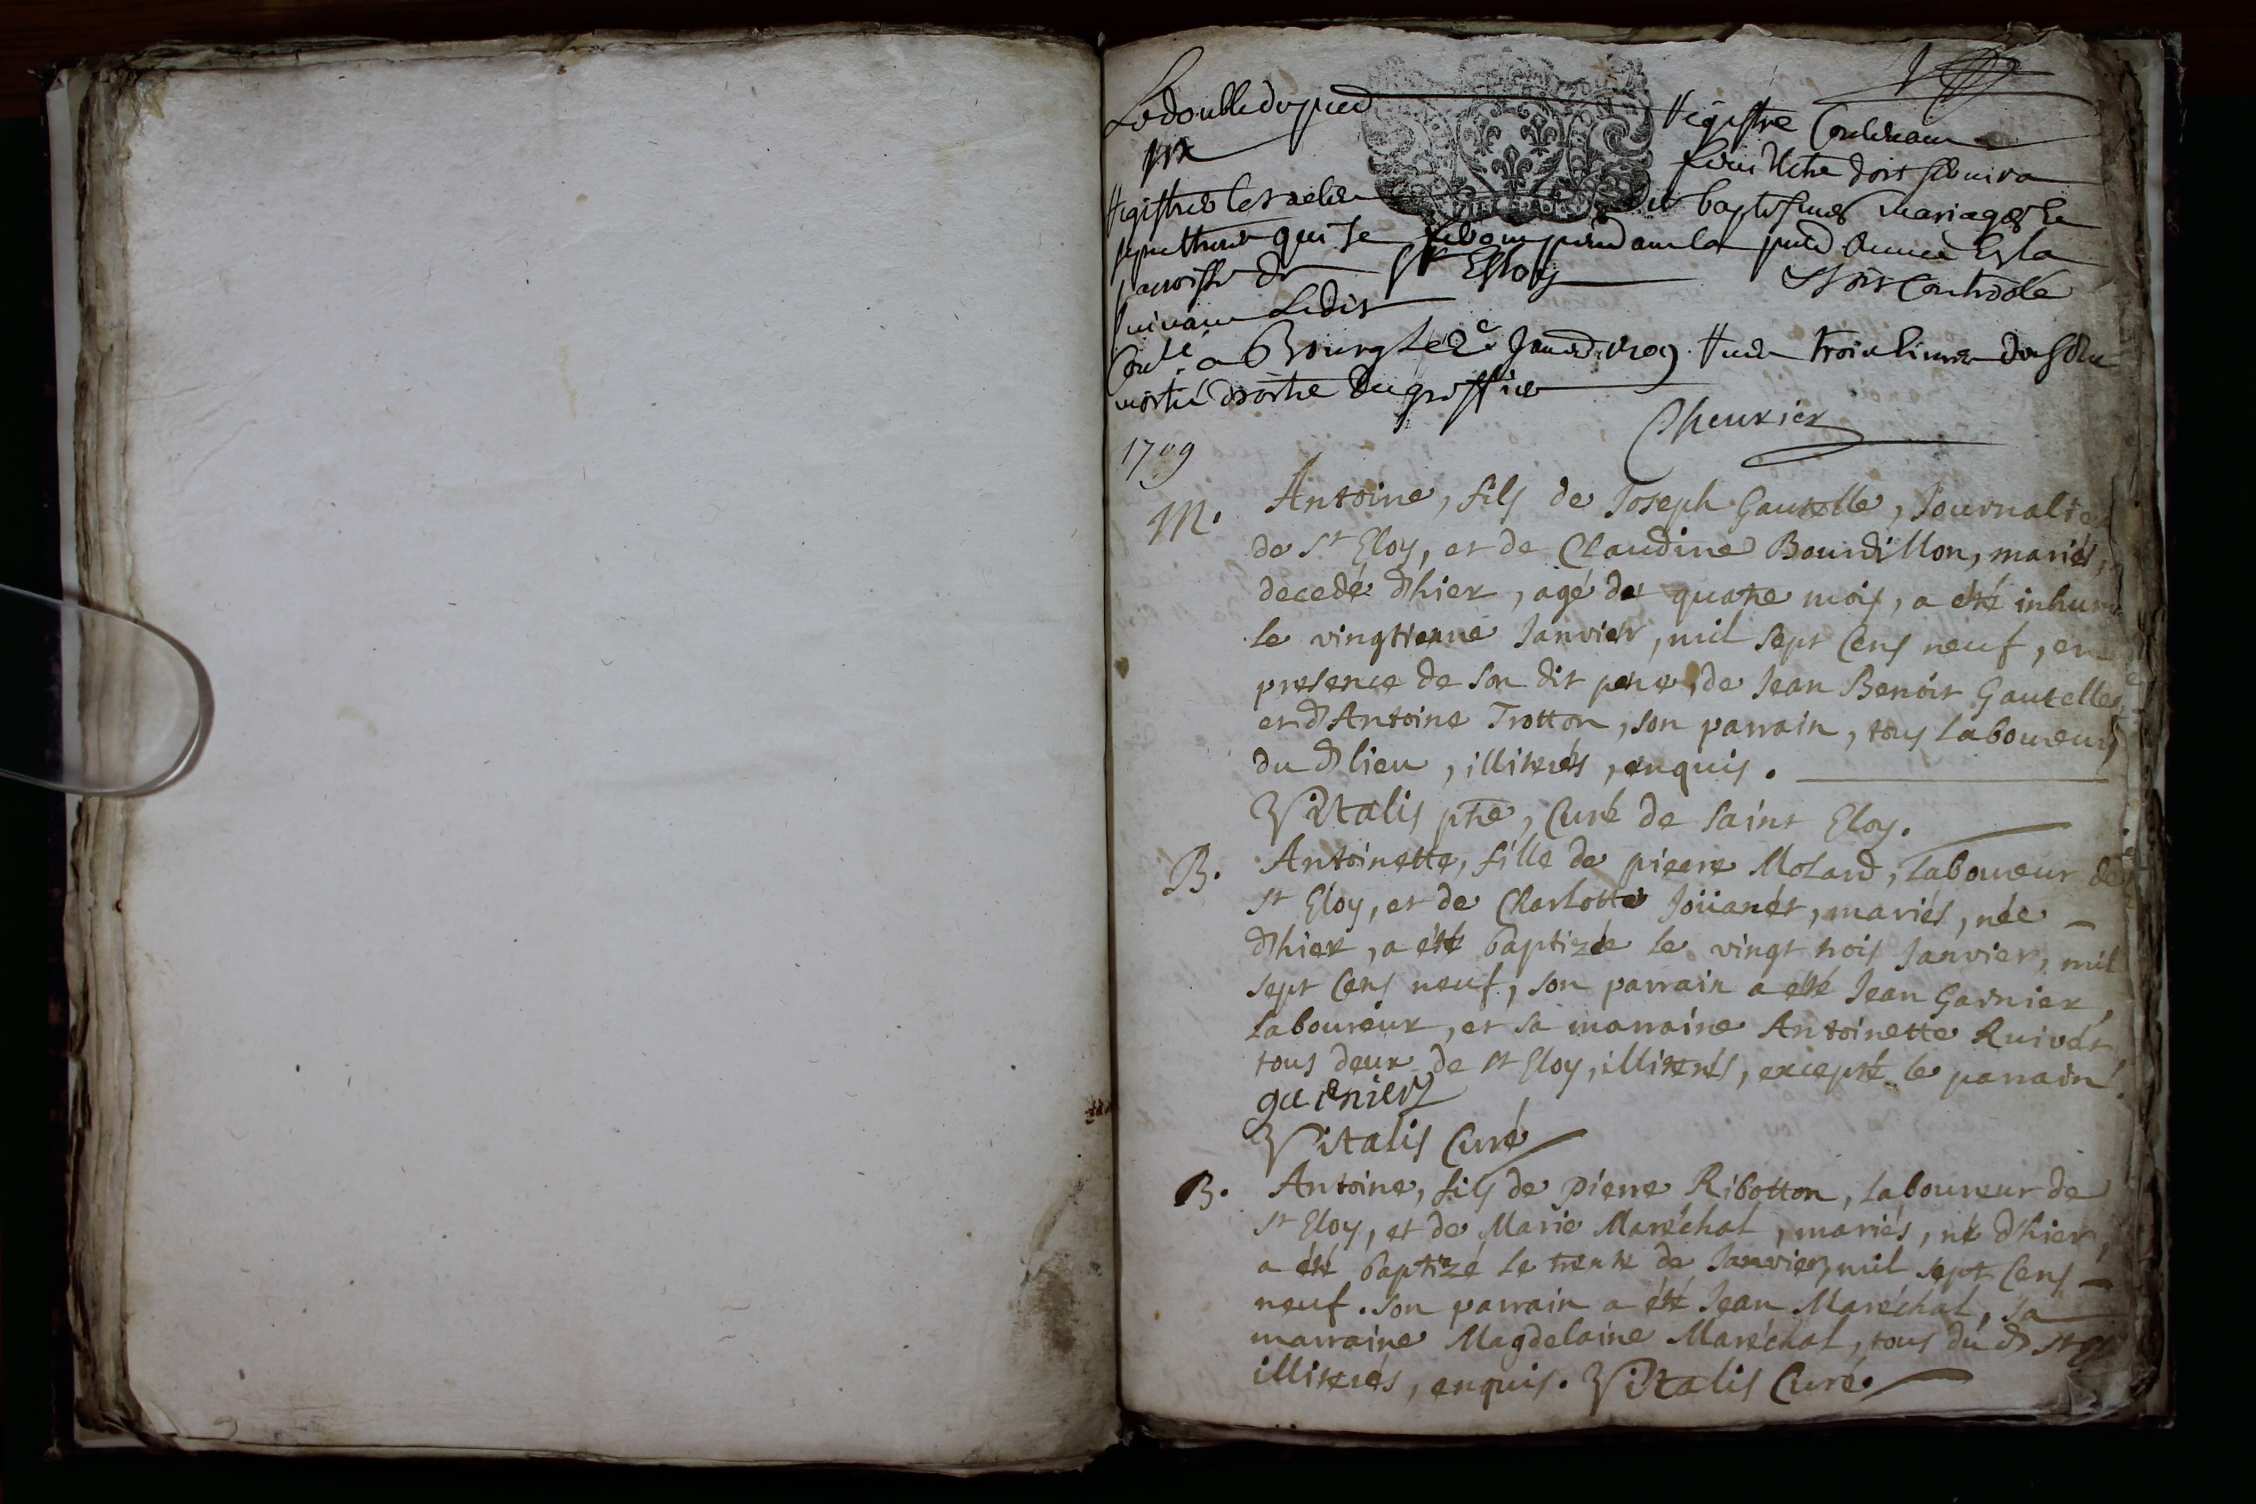 Le double du pnt Registre Contenant
six feuillets doit servir a
Registrer les actes de baptesmes mariages et
sepultures qui se feront pendant la pnte année En la
paroisse de St Eloy Et son Controlle
suivant Ledit
a Bourg Le 2e Janv. 1709. trois livres
moitié droits du greffier
Cheurier
1709
M. Antoine, fils de Joseph Gautelle, Journalier
de St Eloy, et de Claudine Bourdillon, mariés,
decedé d'hier, agé de quatre mois, a été inhumé
le vingtieme Janvier, mil sept Cens neuf, en
presence de son dit pere, de Jean Benoit Gautelle,
et d'Antoine Trotton, son parrain, tous laboureurs
du d lieu, illiterés, enquis.
Vitalis ptre, Curé de Saint Eloy.
B. Antoinette, fille de pierre Molard, laboureur de
St Eloy, et de Charlotte Joüanét, mariés, née
d'hier, a été baptizée le vingt trois Janvier, mil
sept Cens neuf, son parrain a été Jean Garnier,
laboureur, et sa marraine Antoinette Ruivét,
tous deux de St Eloy, illiterés, excepté le parrain.
garnier
Vitalis Curé
B. Antoine, fils de pierre Ribotton, laboureur de
St Eloy, et de Marie Maréchal, mariés, né d'hier,
a été baptizé le trente de Janvier, mil sept Cens
neuf. son parrain a été Jean Maréchal, sa
marraine Magdelaine Maréchal, tous du d St
illiterés, enquis. Vitalis Curé